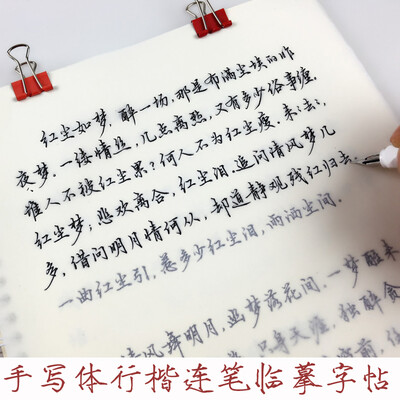 红尘如梦，醉一场，那是布满尘埃的昨
夜梦。一缕情丝，几点离愁，又有多少俗事缠。
谁人不被红尘累？何人不为红尘瘦。来去去，
红尘梦；悲欢离合，红尘泪。追问清风梦几
多，借问明月情何从，却道静观残红归去。
一曲红尘引，惹多少红尘泪，雨洒尘间。
清风舞明月，幽梦落花间。一梦醒来
身天涯，独醉
手写体行楷连笔临摹字帖